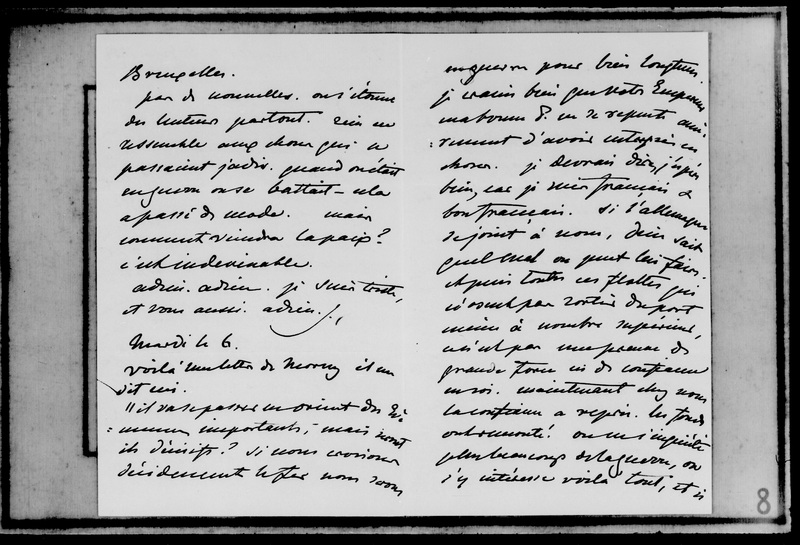 Bruxelles.
pas de nouvelles. on s'étonne
des lenteurs partout. rien ne
ressemble aux choses qui se
passaient jadis. quand on était
en guerre on se battait - cela
a passé de mode. mais
comment viendra la paix?
c'est indevinable.
adieu. adieu. je suis triste,
et vous aussi. adieu.
Mardi le 6.
voilà une lettre de Morny il me
dit ceci.
"il va se passer en orient des évè
= nemens importants, mais seront
ils décisifs? si nous croisons
décidément le fer nous serons
en guerre pour bien longtems.
je crains bien que votre Empereur
ne se repente amè
= rement d'avoir entrepris ces
choses. je devrais dire, j'espère
bien, car je suis français &
bon français. si l'allemagne
se joint à nous, dieu sait
quel mal on peut leur faire.
et puis toutes ces flottes qui
n'osent pas sortir du port
même à nombre supérieur,
n'est pas une preuve de
grande force ni de confiance
en soi. maintenant chez nous
la confiance a repris. les fonds
ont remonté. on ne s'inquiète
plus beaucoup de la guerre, on
s'y intéresse voilà tout, et si
8